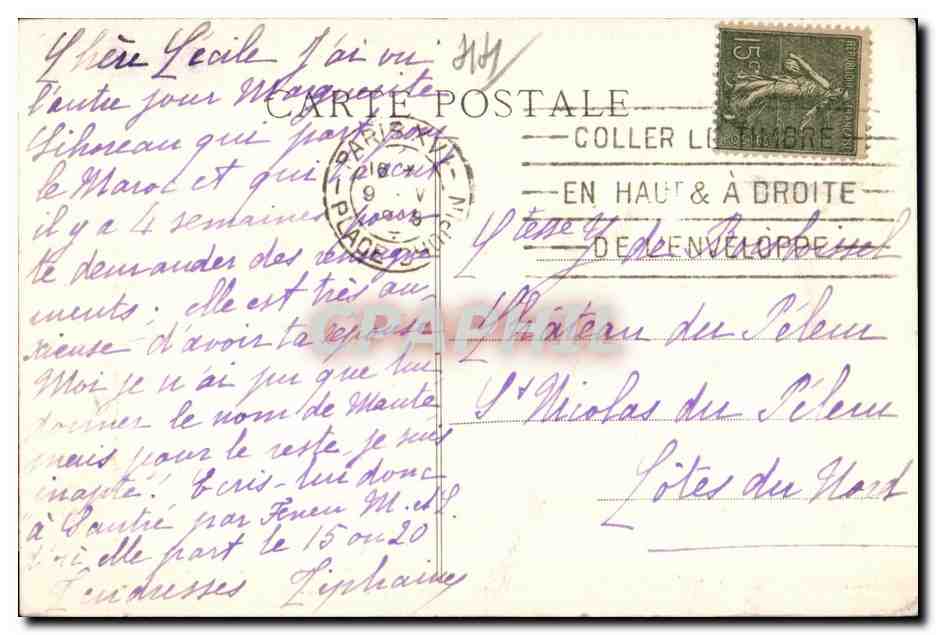 Chère Cécile J'ai vu
l'autre jour Marguerite
qui part pour
le Maroc et qui t'écrit
il y a 4 semaines pour
te demander des renseigne
ments. Elle est très an-
xieuse d'avoir ta réponse
Moi je n'ai pu que lui
donner le nom de
mais pour le reste je suis
inapte! Ecris-lui donc
à par Feneu M. et L.
d'où elle part le 15 ou 20
Tendresses Tiphaine
44
CARTE POSTALE
REPUBLIQUE FRANÇAISE
15c
PARIS XVI
18
9 V
PLACE
COLLER LE TIMBRE
EN HAUT & À DROITE
DE L'ENVELOPPE
Ctesse Y de
Château du Pélem
St Nicolas du Pélem
Côtes du Nord
CPAPHIL